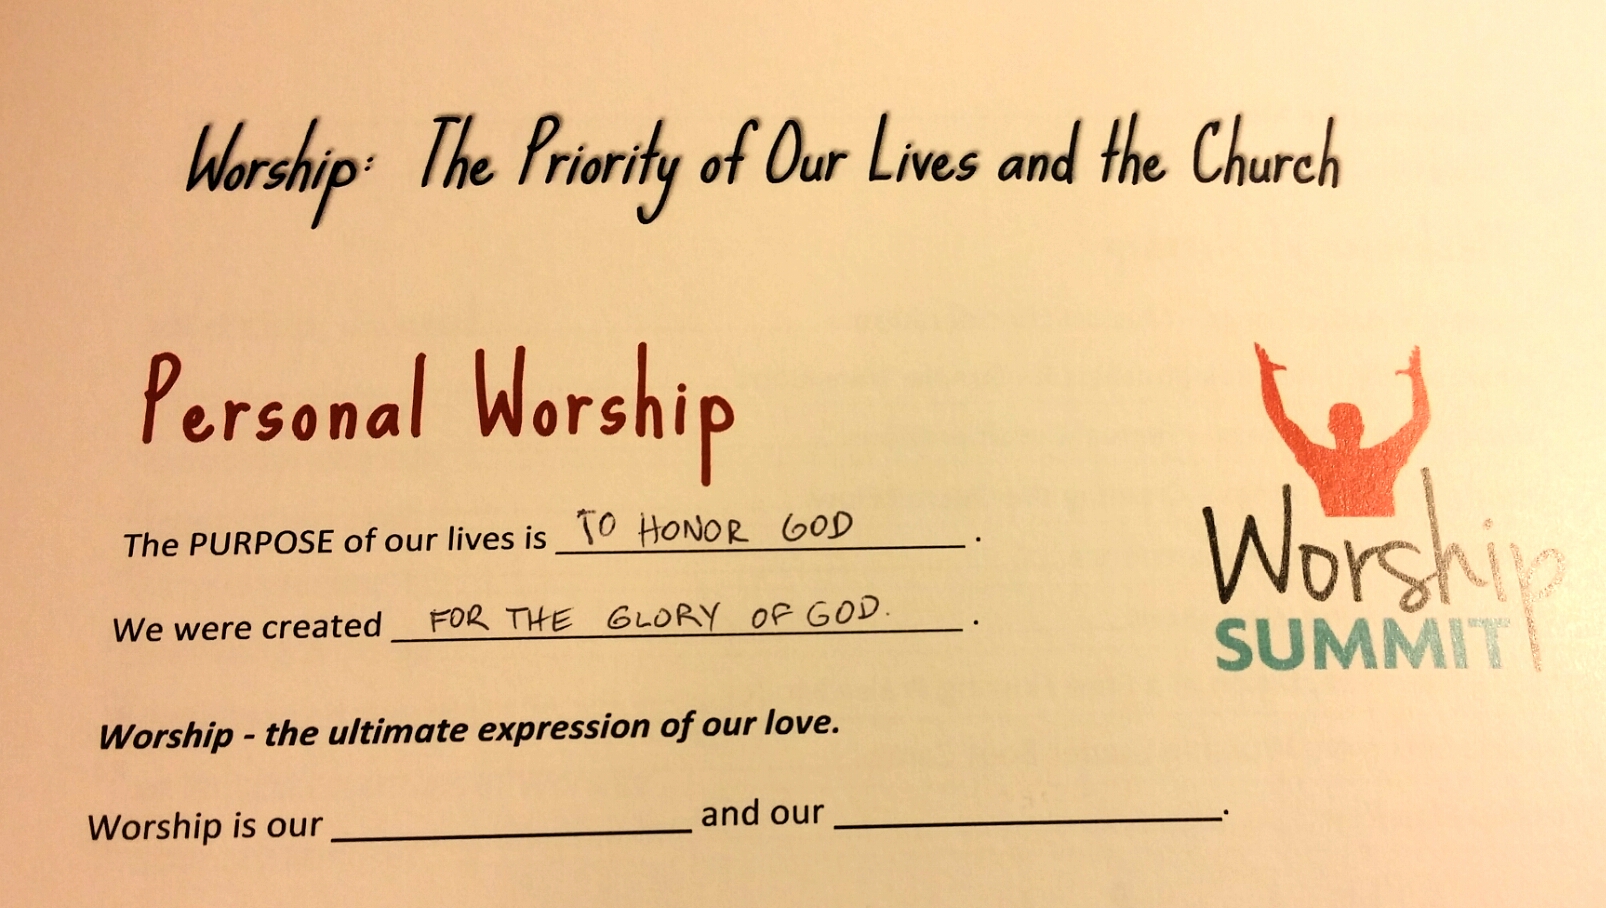 Worship: The Priority of Our Lives and the Church
Personal Worship
The PURPOSE of our lives is TO HONOR GOD .
We were created FOR THE GLORY OF GOD. .
Worship - the ultimate expression of our love.
Worship is our ____________ and our ____________.
Worship
SUMMIT